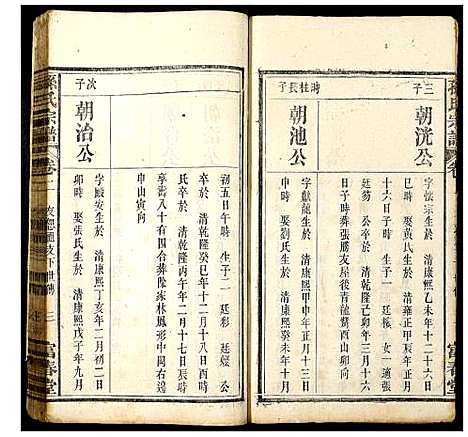 孫氏宗譜
卷
富春堂
三子
朝洸公
字懷宗生於 清康熙乙未年十二月十六
巳時 娶黃氏生於 清雍正甲寅年正月
十六日子時 生子一 廷樑 女一適張
廷芴 公卒於 清乾隆己卯年三月十六
日子時葬張勝友屋後青龍嘴酉山卯向
時柱長子
朝池公
字獻龍生於 清康熙甲申年正月十三日
申時 娶劉氏生於 清康熙癸未年十月
初五日午時 生子二 廷彩 廷燦 公
卒於 清乾隆癸巳年十二月十八日酉時
氏卒於 清乾隆丙午年二月十七日辰時
享壽八十有四合葬陸家林鳳形中間
申山寅向
次子
朝治公
字顯安生於 清康熙丁亥年二月初二日
卯時 娶張氏生於 清康熙戊子年九月
孫氏宗譜
卷二
友恕通支下世傳
三
富春堂